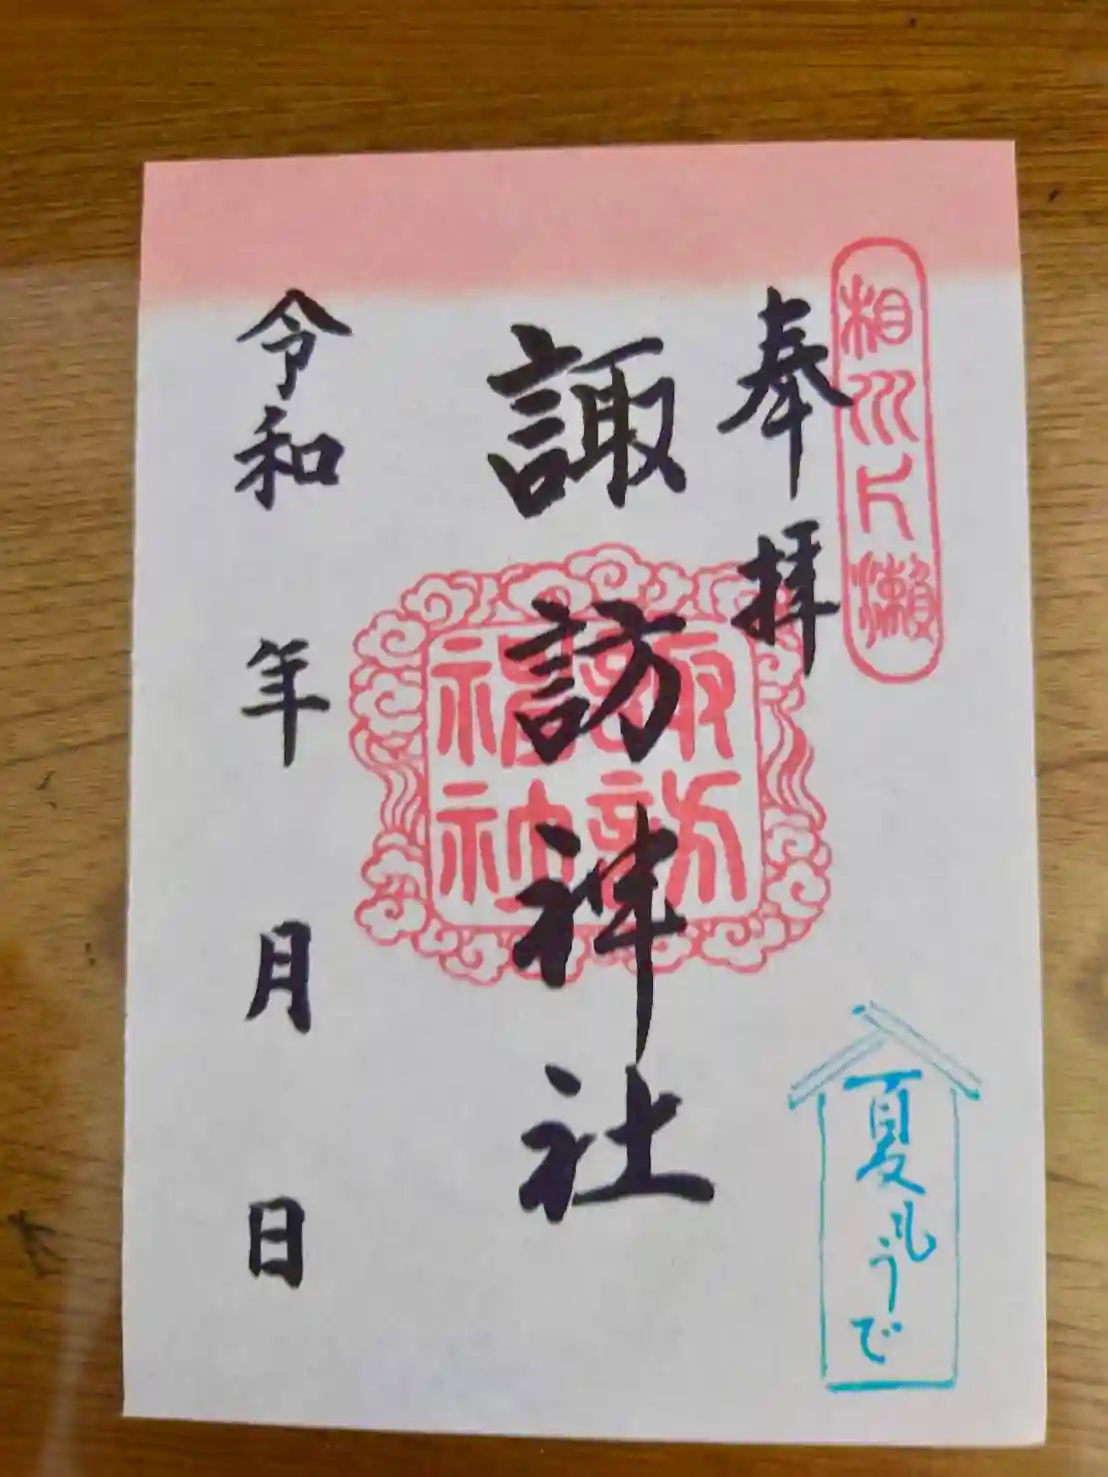 相州片瀬
奉拝
夏もうで
諏訪神社
諏訪
神社
令和 年 月 日